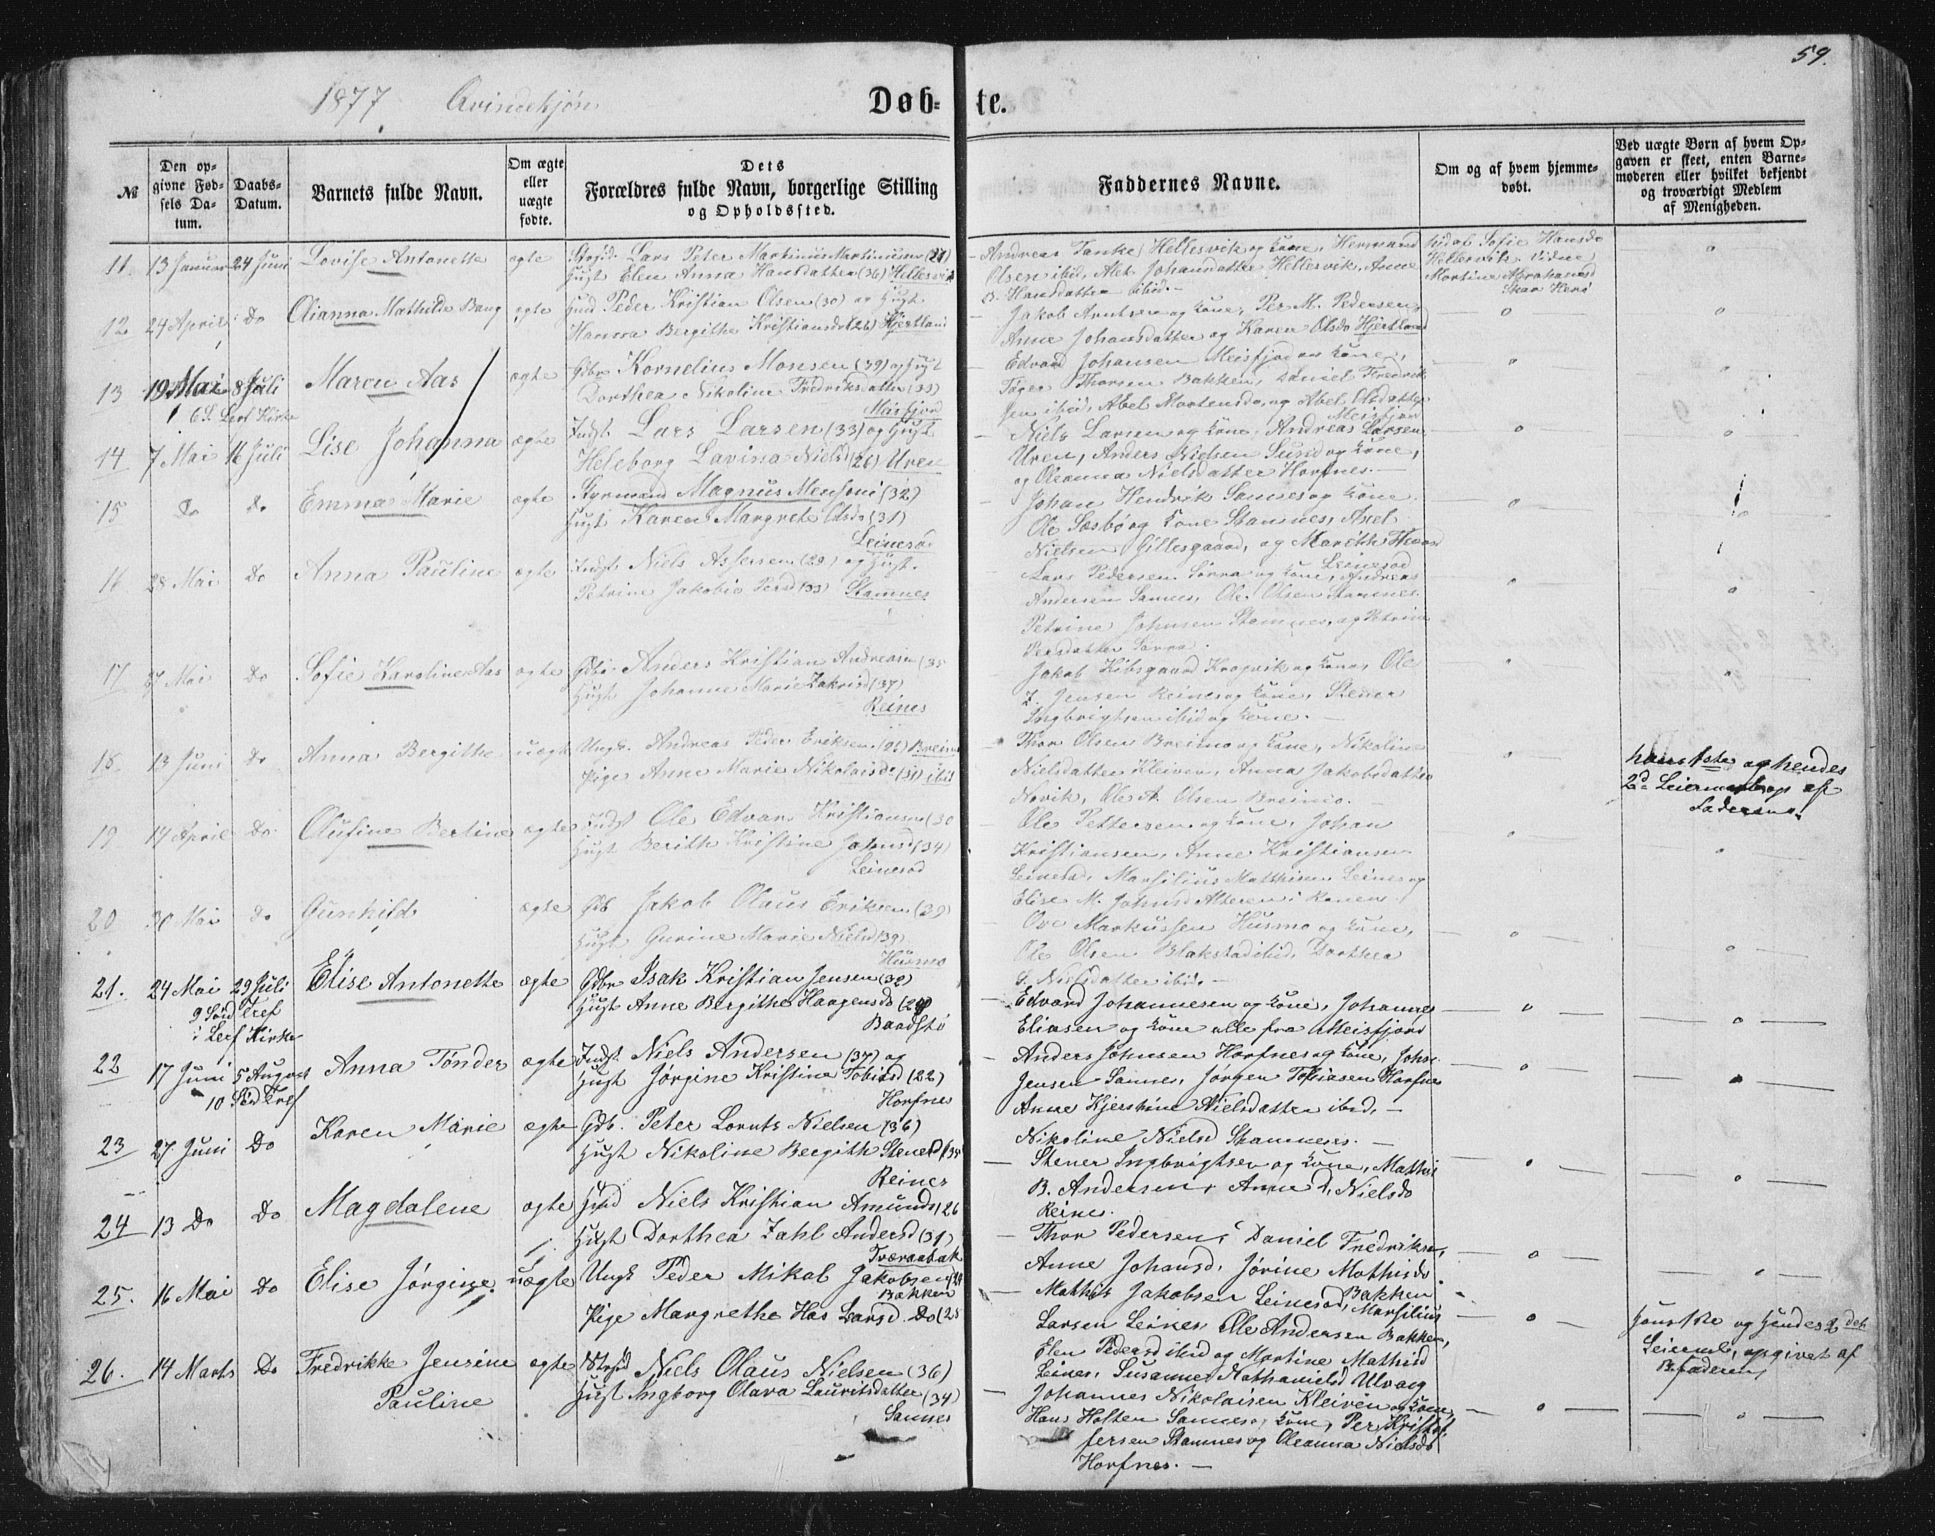 59.
1877 Qvindekjøn
Døb- te.
№
Den opgivne Fødsels Datum.
Daabs-Datum.
Barnets fulde Navn.
Om ægte eller uægte fødte.
Dets Forældres fulde Navn, borgerlige Stilling og Opholdssted.
Faddernes Navne.
Om og af hvem hjemmedøbt.
Ved uægte Børn af hvem Opgaven er skeet, enten Barnemoderen eller hvilket bekjendt og troværdigt Medlem af Menigheden.
11. 13 Januar 24 Juni Lovise Antonette ægte Lars Peter Martinus Martinusen (27)
Hugt Elen Anna Hansdatter (36) Hellesvik
Andreas Tanke Hellesvik og Kone, Hermand
Olsen ibid, Alet Johansdatter Hellesvik, Anne
B. Hansdatter ibid. —
ved Sofie Hansdr
Hellesvik. Vidne
Martine Abrahamsd
Skar Herø
12 24 April Do Olianna Mathilde Bang ægte Hmd Peder Kristian Olsen (30) og Hugt
Hanna Bergithe Kristiansdr (26) Hjertland
Jakob Arntsen og Kone, Per M. Pedersen
Anne Johansdatter og Karen Olsdr Hjertland
13 19 Mai 8 Juli Maren Aas ægte Gbr Kornelius Monsen (39) og Hugt
6 S. Lerf Kirke
Dorthea Nikoline Fredriksdatter (33)
Meisfjord
Edvard Johansen Meisfjord og Kone,
Tøger Thorsen Bakken, Daniel Fredrik
sen ibid, Abel Mortensdr, og Abel Olsdatter
Meisfjord
14 7 Mai 16 Juli Lise Johanna ægte Indst Lars Larsen (33) og Hugt
Heleborg Lavina Nielsd (26) Uren
Niels Larsen og Kone, Andreas Larsen
Uren, Anders Nielsen Sund og Kone,
og Oleanna Nielsdatter Horfnes. —
15 Do Do Emma Marie ægte Styrmand Magnus Mensoni (32)
Hugt Karen Margrete Olsdr (31)
Leinesod
Johan Hendrik Sannes og Kone
Ole Sæsbø og Kone Stamnes, Axel
Nielsen Gillesgaard, og Marith
Leinesod
16 28 Mai Do Anna Pauline ægte Indst. Niels Assersen (29) og Hugt.
Petrine Jakobie Persd (33) Stamnes
Lars Pedersen Sørra og Kone, Andreas
Andersen Sannes, Ole Olsen Stamnes
Petrine Johnsen Stamnes, og Petrine
Persdatter Sørra.
17 27 Mai Do Sofie Karoline Aas ægte Gbr. Anders Kristian Andreasen (35
Hugt Johanna Marie Zakrisd (37)
Reines
Jakob Hibsgaard Kropvik og Kone, Ole
Z. Jensen Reines og Kone, Stener
Ingbrigtsen ibid og Kone. —
18 13 Juni Do Anna Bergithe uægte Ungk. Andreas Peder Eriksen (26) Breimo
Pige Anne Marie Nikolaisdr (31) ibid
Thor Olsen Breimo og Kone, Nikoline
Nielsdatter Kleiven, Anna Jakobsdatter
Novik, Ole A. Olsen Breimo.
hans 1ste og hendes
2d Leiermaal op af
Faderen
19 14 April Do Olufine Bertine ægte Indst Ole Edvar Kristiansen (30
Hugt Berith Kristine Johnsd (34)
Leinesod
Ole Pettersen og Kone, Johan
Kristiansen, Anne Kristiansen
Leinesd, Marsilius Mathisen Leines og
Elise M. Johnsd Alteren i Ranen.
20 30 Mai Do Gunhild ægte Gdb Jakob Olaus Eriksen (39)
Hugt Gurine Marie Nielsd (39)
Husmo
Ove Markussen Husmo og Kone,
Ole Olsen Blakstad ibid, Dorthea
Nielsdatter ibid. —
21. 24 Mai 29 Juli Elise Antonette ægte Gdbr Isak Kristian Jensen (32)
9 Sønd Tref
i Lerf Kirke
Hugt Anne Bergithe Haagensdr (29)
Baadstø
Edvard Johannesen og Kone, Johannes
Eliasen og Kone alle fra Meisfjord
22 17 Juni 5 August Anna Tønder ægte Indst. Niels Andersen (37) og
10 Sød Tref
Hugt Jørgine Kristine Tobiasd (22)
Horfnes
Anders Johnsen Horfnes og Kone, Johs.
Jensen Sannes, Jørgen Tobiasen Horfnes
Anne Kjerstine Nielsdatter ibid. —
23 27 Juni Do Karen Marie ægte Gdb. Peter Lornts Nielsen (36)
Hugt Nikoline Bergith Stenersd (34
Reines
Nikoline Nielsd Stamnes. —
Stener Ingbrigtsen og Kone, Mathis
B. Andersen, Anne d. Nielsdr
Reines.
24 13 Do Do Magdalene ægte Hmd Niels Kristian Amunds (26
Hugt Dorthea Zahl Andersd (31)
Tværaabak
Thor Pedersen, Daniel Fredriksen,
Anne Johansd, Jørine Mathisdr
Bakken
25. 16 Mai Do Elise Jørgine uægte Ungk Peder Mikal Jakobsen (24
Bakken
Pige Margrethe Has Larsd. Do (25
Mathis Jakobsen Leinesod, Marsilius
Larsen Leines, Ole Andersen Bakken,
Elen Pedersd ibid og Martine Mathisd
Leines, Susanne Nathanielsd Ulvang
Hans 1ste og Hendes 2det
Leierml, opgivet af
B. faderen
26. 14 Marts Do Fredrikke Jensine Pauline ægte Strsid Niels Olaus Nielsen (36)
Hugt Ingborg Olava Lauritsdatter (34)
Sannes
Johannes Nikolaisen Kleiven og Kone,
Hans Holten Sannes og Kone, Per Kristof
fersen Stamnes og Oleanna Nielsdr
Horfnes. —